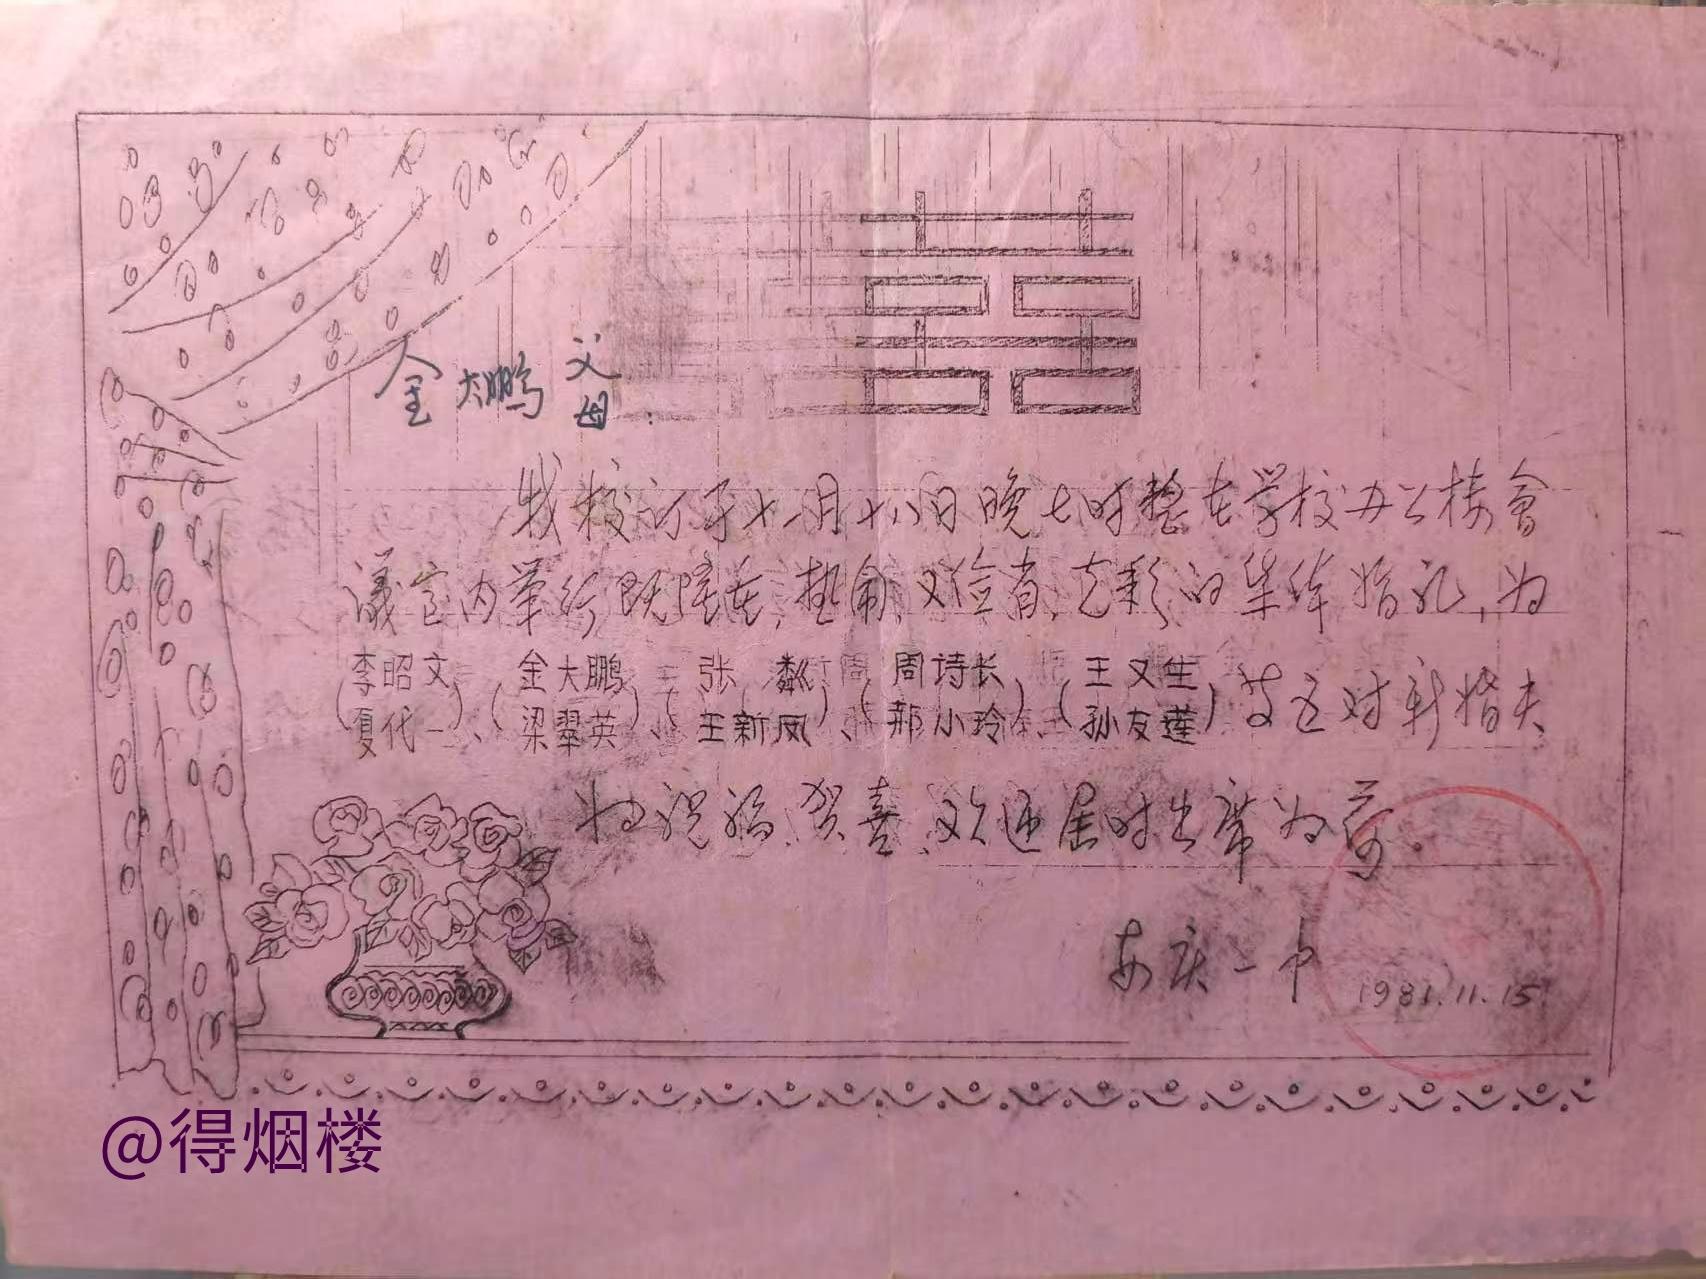 囍
金大鹏 父
母：
我校订于十一月十八日晚七时整在学校办公楼會
議室内举行既隆重、热闹、又俭省、光彩的集体婚礼，为
李昭文 金大鹏 张 飙 周诗长 王又生
( )、( )、( )、( )、( )等五对新婚夫
夏代一 梁翠英 王新凤 郝小玲 孙友莲
妇祝福、贺喜、欢迎届时出席为荷.
安庆一中
1981.11.15
@得烟楼